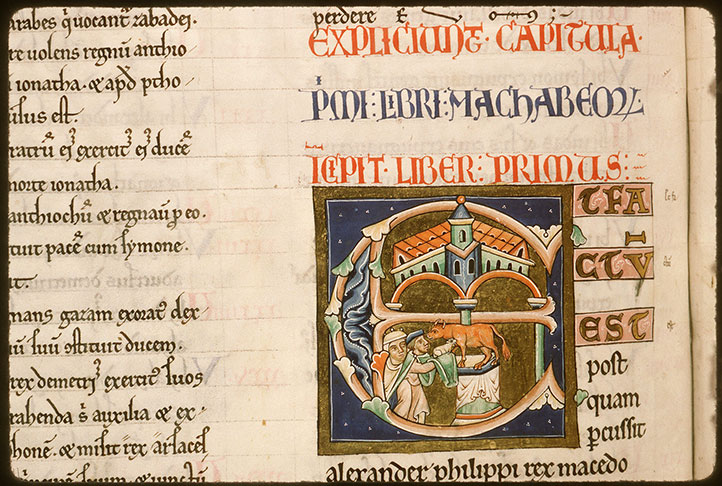 arabes q̇ uocant̄ zabadei.
re uolens regnū anthio
ionatha. & apđ ptho
ulus est.
ratrū ei' exercit' ei' ducē
morte ionatha.
anthiochū & regnauͣ p eo.
tuit pacē cum symone.
it.
mans garam exorat' dex
iū suū ɔstituit ducem.
rex demetri' exercit' suos
rahenda s auxilia & ex-
phonē. & misit rex arsacel
perdere &
EXPLICIUNT · CAPITULA ·
P̊MI : LIBRI : MACHABEOꝜ.
ĪCIPIT · LIBER : PRIMUS :
ET FA
I
CTV
EST
post
quam
p̄cussit
alexander philippi rex macedo